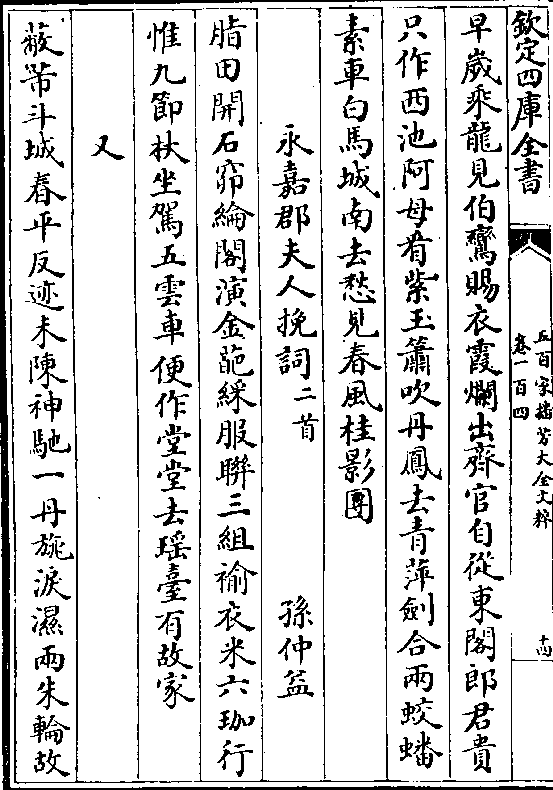 欽定四庫全書
五百家播芳大全文粹
卷一百四
十四
早歲乘龍見伯鸞賜衣霞爛出齊官自從東閣郎君貴
只作西池阿母看紫玉簫吹丹鳳去青萍劍合兩蛟蟠
素車白馬城南去愁見春風桂影團
永嘉郡夫人挽詞二首 孫仲益
脂田開石窌綸閣演金葩綵服聯三組褕衣米六珈行
惟九節杖坐駕五雲車便作堂堂去瑶臺有故家
又
蔽芾斗城春平反迹未陳神馳一丹旐淚濕兩朱輪故